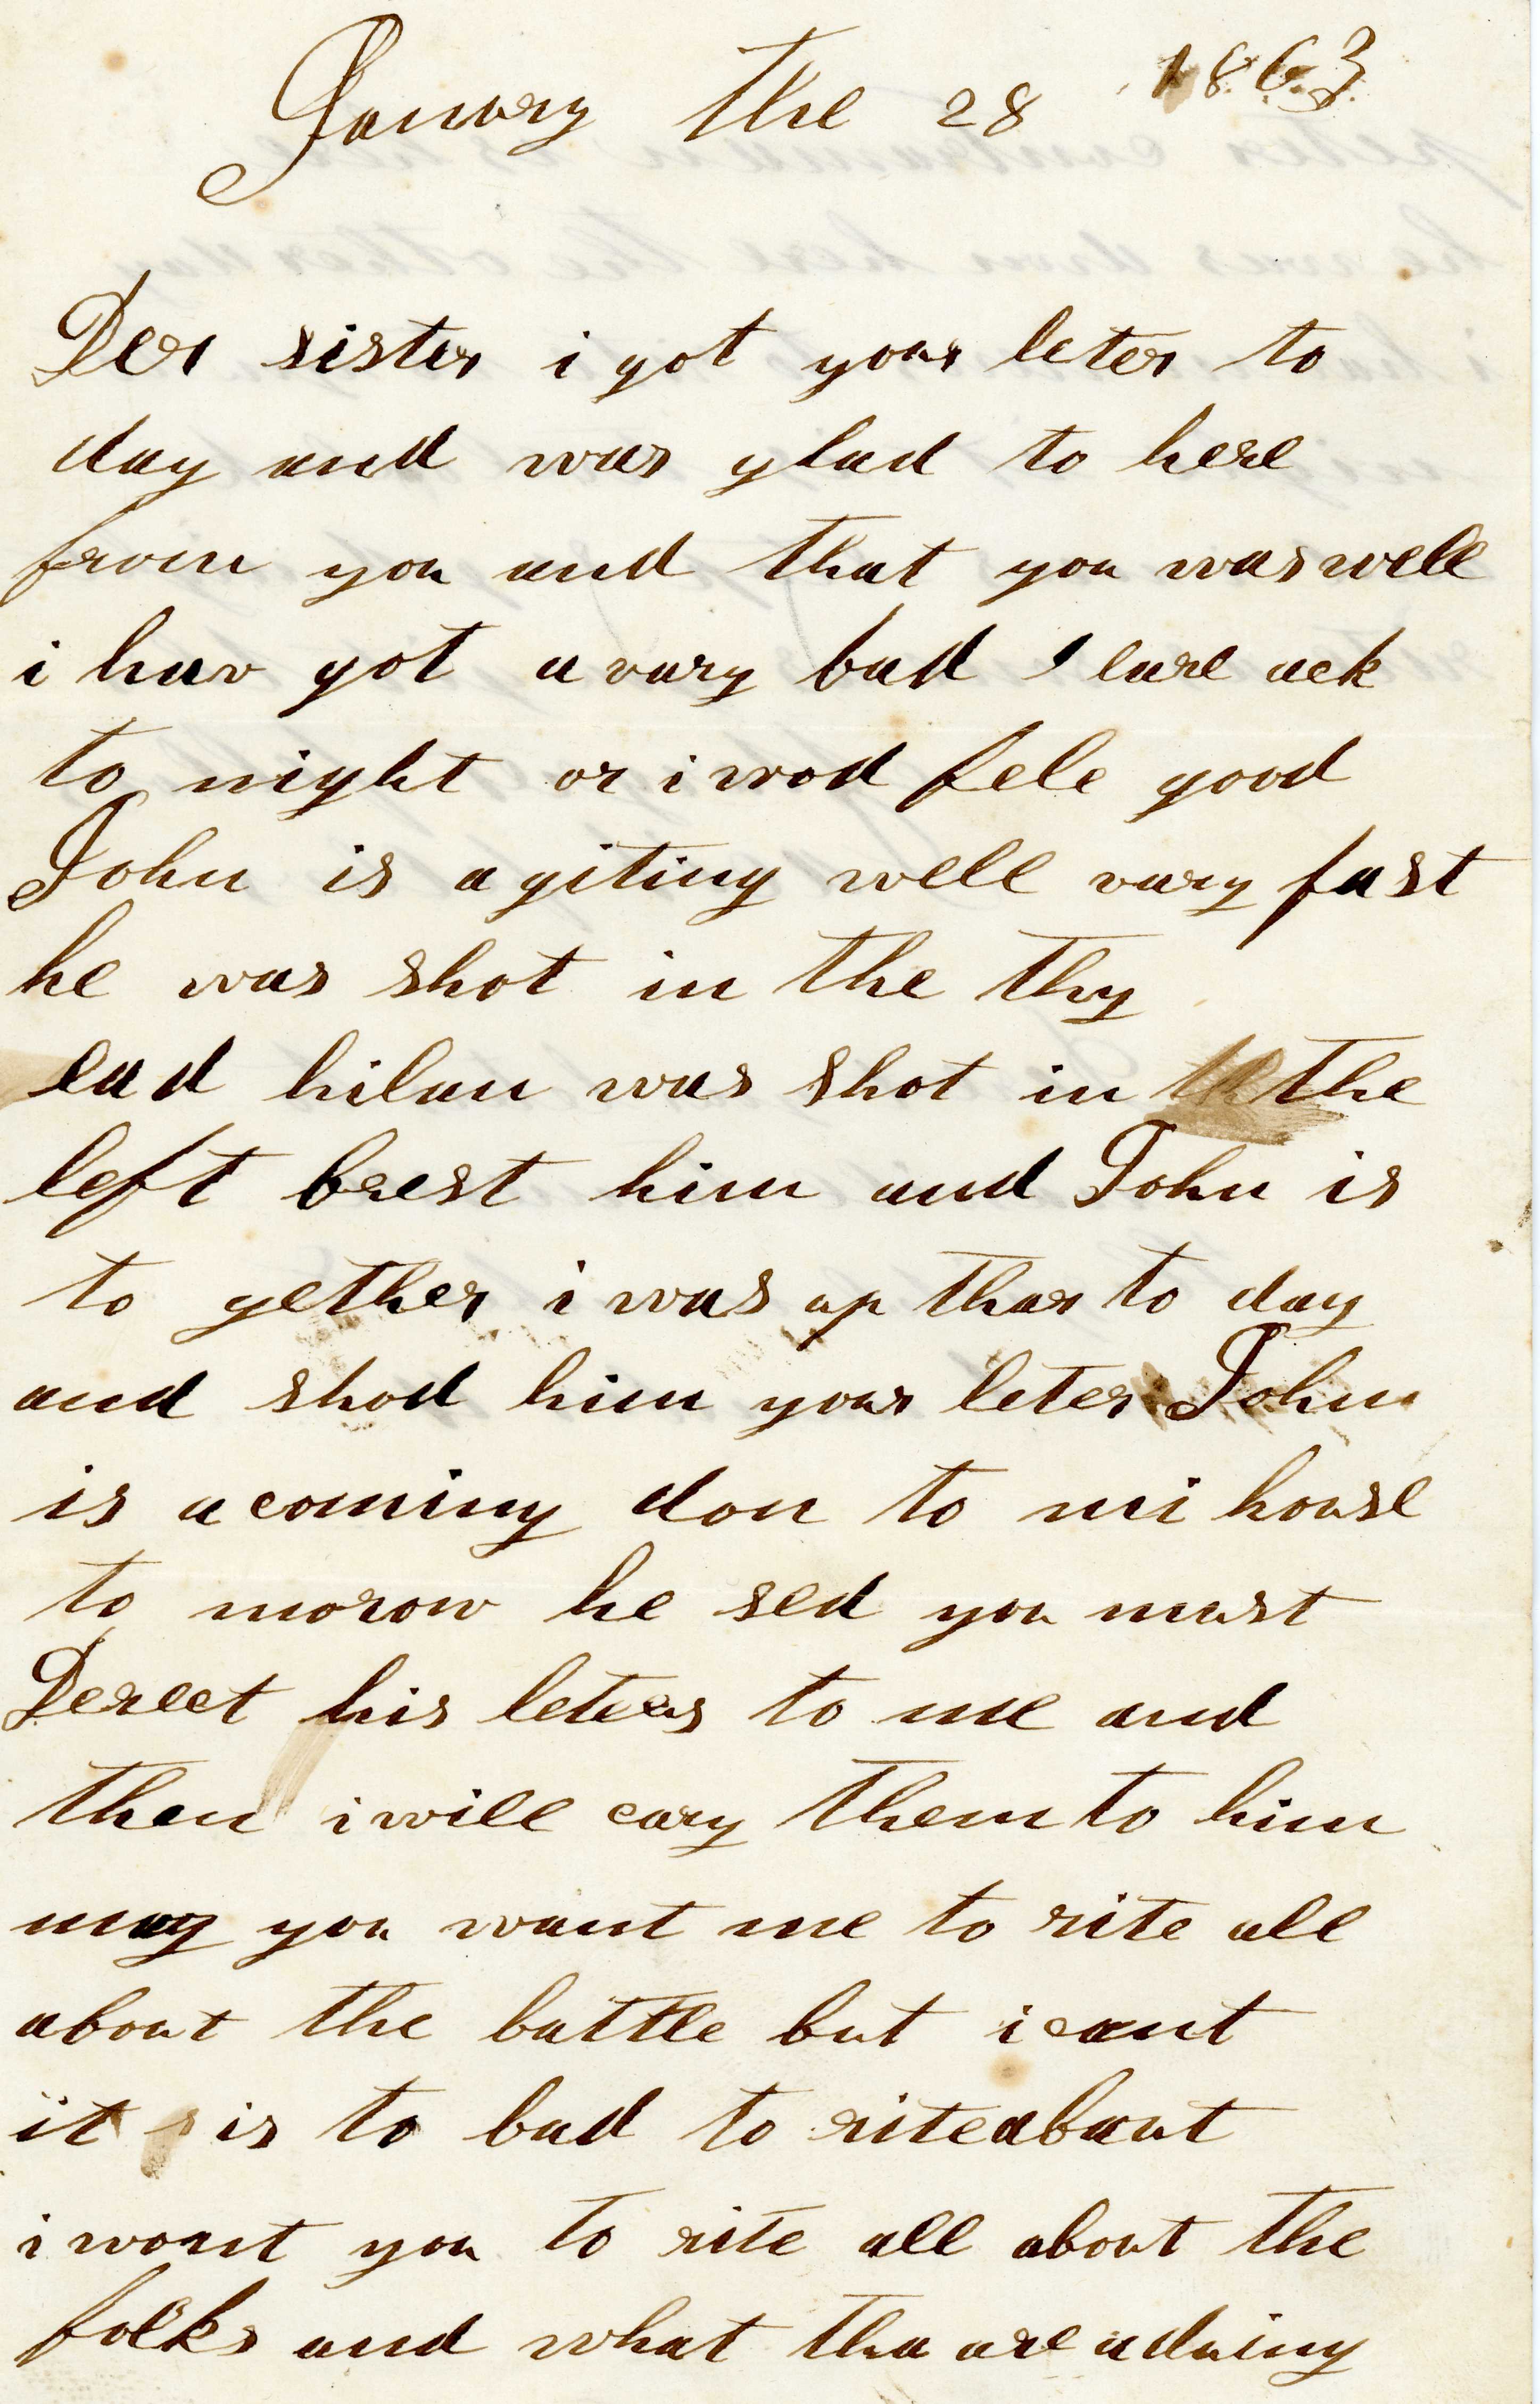 Janury the 28 1863
Der sister i got your leter to
day and was glad to here
from you and that you was well
i hav got a vary bad eare ack
to night or i wod fele good
John is a giting well vary fast
he was shot in the thy
ead hilan was shot in the
left brest him and John is
to gether i was up thar to day
and shod him your leter John
is a coming don to mi house
to morow he sed you must
Derect his leters to me and
then i will cary them to him
may you want me to rite all
about the battle but i cant
it is to bad to rite about
i wont you to rite all about the
folks and what tha are aduing